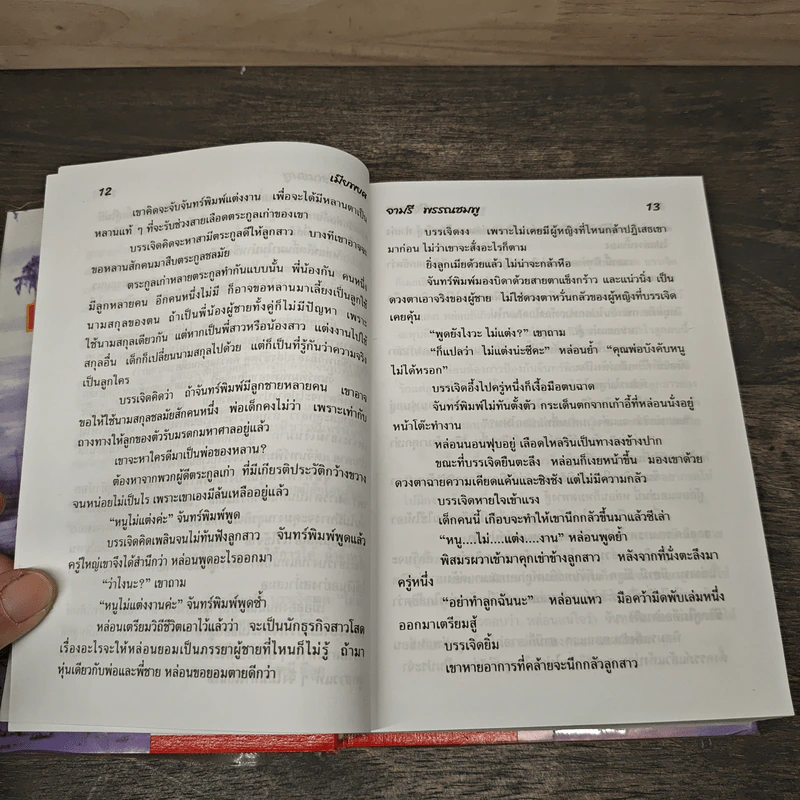 12
เมียพยศ
เขาคิดจะจับจันทร์พิมพ์แต่งงาน เพื่อจะได้มีหลานตาเป็น
หลานแท้ ๆ ที่จะรับช่วงสายเลือดตระกูลเก่าของเขา
บรรเจิดคิดจะหาสามีตระกูลดีให้ลูกสาว บางทีเขาอาจจะ
ขอหลานสักคนมาสืบตระกูลชลมัย
ตระกูลเก่าหลายตระกูลทำกันแบบนั้น พี่น้องกัน คนหนึ่ง
มีลูกหลายคน อีกคนหนึ่งไม่มี ก็อาจขอหลานมาเลี้ยงเป็นลูกใช้
นามสกุลของตน ถ้าเป็นพี่น้องผู้ชายทั้งคู่ก็ไม่มีปัญหา เพราะ
ใช้นามสกุลเดียวกัน แต่หากเป็นพี่สาวหรือน้องสาว แต่งงานไปใช้
สกุลอื่น เด็กก็เปลี่ยนนามสกุลไปด้วย แต่ก็เป็นที่รู้กันว่าความจริง
เป็นลูกใคร
บรรเจิดคิดว่า ถ้าจันทร์พิมพ์มีลูกชายหลายคน เขาอาจ
ขอให้ใช้นามสกุลชลมัยสักคนหนึ่ง พ่อเด็กคงไม่ว่า เพราะเท่ากับ
ถางทางให้ลูกของตัวรับมรดกมหาศาลอยู่แล้ว
เขาจะหาใครดีมาเป็นพ่อของหลาน?
ต้องหาจากพวกผู้ดีตระกูลเก่า ที่มีเกียรติประวัติกว้างขวาง
จนหน่อยไม่เป็นไร เพราะเขาเองมีล้นเหลืออยู่แล้ว
“หนูไม่แต่งค่ะ” จันทร์พิมพ์พูด
บรรเจิดคิดเพลินจนไม่ทันฟังลูกสาว จันทร์พิมพ์พูดแล้ว
ครู่ใหญ่เขาจึงได้สำนึกว่า หล่อนพูดอะไรออกมา
“ว่าไงนะ?” เขาถาม
“หนูไม่แต่งงานค่ะ” จันทร์พิมพ์พูดซ้ำ
หล่อนเตรียมวิถีชีวิตเอาไว้แล้วว่า จะเป็นนักธุรกิจสาวโสด
เรื่องอะไรจะให้หล่อนยอมเป็นภรรยาผู้ชายที่ไหนก็ไม่รู้ ถ้ามา
หุ่นเดียวกับพ่อและพี่ชาย หล่อนขอยอมตายดีกว่า
จามรี พรรณชมพู
13
บรรเจิดงง เพราะไม่เคยมีผู้หญิงที่ไหนกล้าปฏิเสธเขา
มาก่อน ไม่ว่าเขาจะสั่งอะไรก็ตาม
ยิ่งลูกเมียด้วยแล้ว ไม่น่าจะกล้าหือ
จันทร์พิมพ์มองบิดาด้วยสายตาแข็งกร้าว และแน่วนิ่ง เป็น
ดวงตาเอาจริงของผู้ชาย ไม่ใช่ดวงตาหวั่นกลัวของผู้หญิงที่บรรเจิด
เคยคุ้น
“พูดยังไงวะ ไม่แต่ง?” เขาถาม
“ก็แปลว่า ไม่แต่งน่ะซีคะ” หล่อนย้ำ “คุณพ่อบังคับหนู
ไม่ได้หรอก”
บรรเจิดอึ้งไปครู่หนึ่งก็เงื้อมือตบฉาด
จันทร์พิมพ์ไม่ทันตั้งตัว กระเด็นตกจากเก้าอี้ที่หล่อนนั่งอยู่
หน้าโต๊ะทำงาน
หล่อนนอนฟุบอยู่ เลือดไหลรินเป็นทางลงข้างปาก
ขณะที่บรรเจิดยืนตะลึง หล่อนก็เงยหน้าขึ้น มองเขาด้วย
ดวงตาฉายความเคียดแค้นและชิงชัง แต่ไม่มีความกลัว
บรรเจิดหายใจเข้าแรง
เด็กคนนี้ เกือบจะทำให้เขานึกกลัวขึ้นมาแล้วซีเล่า
“หนู....ไม่....แต่ง....งาน” หล่อนพูดย้ำ
พิสมรผวาเข้ามาคุกเข่าข้างลูกสาว หลังจากที่นั่งตะลึงมา
ครู่หนึ่ง
“อย่าทำลูกฉันนะ” หล่อนแหว มือคว้ามีดพับเล่มหนึ่ง
ออกมาเตรียมสู้
บรรเจิดยิ้ม
เขาหายอาการที่คล้ายจะนึกกลัวลูกสาว